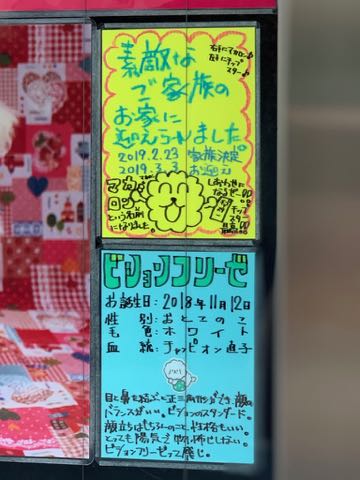 素敵な
ご家族の
お家に
迎えられました
2019.2.23 家族決定
2019.3.3 お迎え
という名前
になりました。
しあわせに
なるぞー
ビションフリーゼ
お誕生日：2018年11月12日
性別：おとこのこ
毛色：ホワイト
血統：チャンピオン直子
目と鼻を結ぶと正三角形ができ、顔の
バランスがいい。ビションのスタンダード。
顔立ちはもちろんのこと、性格もいい。
とっても陽気で物怖じしない。
ビションフリーゼって感じ。